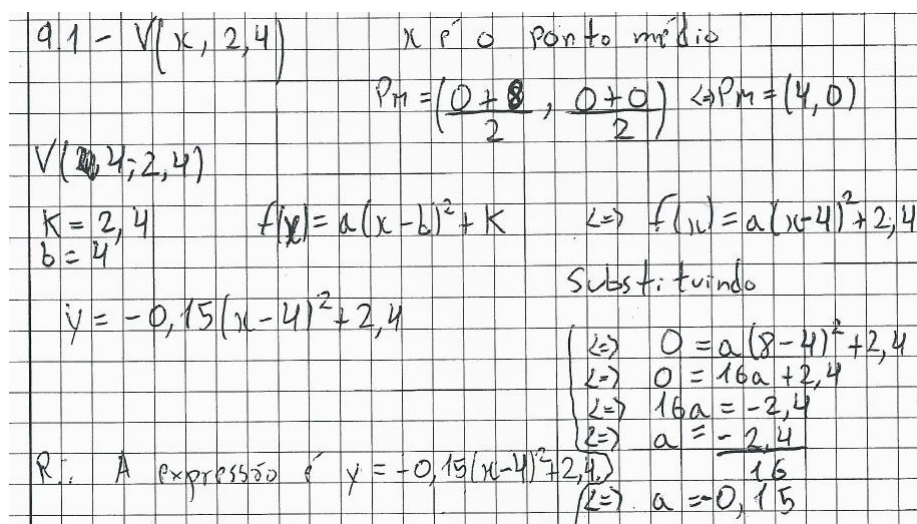 9.1 - V(x, 2,4) x é o ponto médio
Pm = ((0+8)/2, (0+0)/2) <=> Pm = (4,0)
V(4; 2,4)
K = 2,4 f(x) = a(x-b)² + K <=> f(x) = a(x-4)² + 2,4
b = 4
Substituindo
y = -0,15(x-4)² + 2,4
<=> 0 = a(8-4)² + 2,4
<=> 0 = 16a + 2,4
<=> 16a = -2,4
<=> a = -2,4/16
R.: A expressão é y = -0,15(x-4)² + 2,4.
<=> a = -0,15